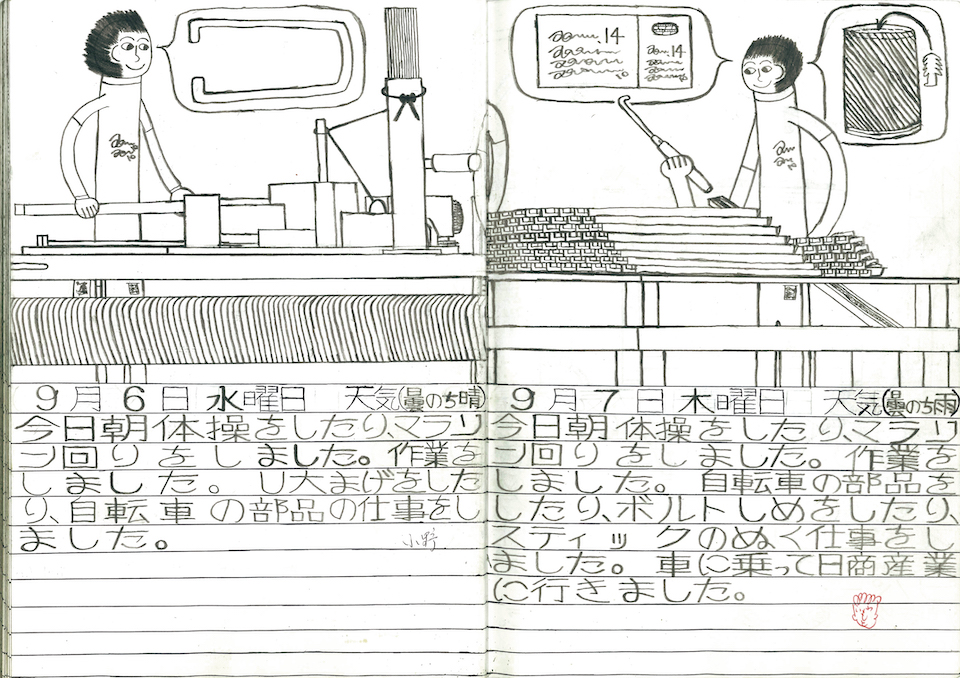 .14
.14
9月6日水曜日 天気(曇のち晴)
今日朝体操をしたり、マラソ
ン回りをしました。作業を
しました。U大まげをした
り、自転車の部品の仕事をし
ました。
小野
9月7日木曜日 天気(曇のち雨)
今日朝体操をしたり、マラソ
ン回りをしました。作業を
しました。自転車の部品を
したり、ボルトしめをしたり、
スティックのぬく仕事をし
ました。車に乗って日商産業
に行きました。